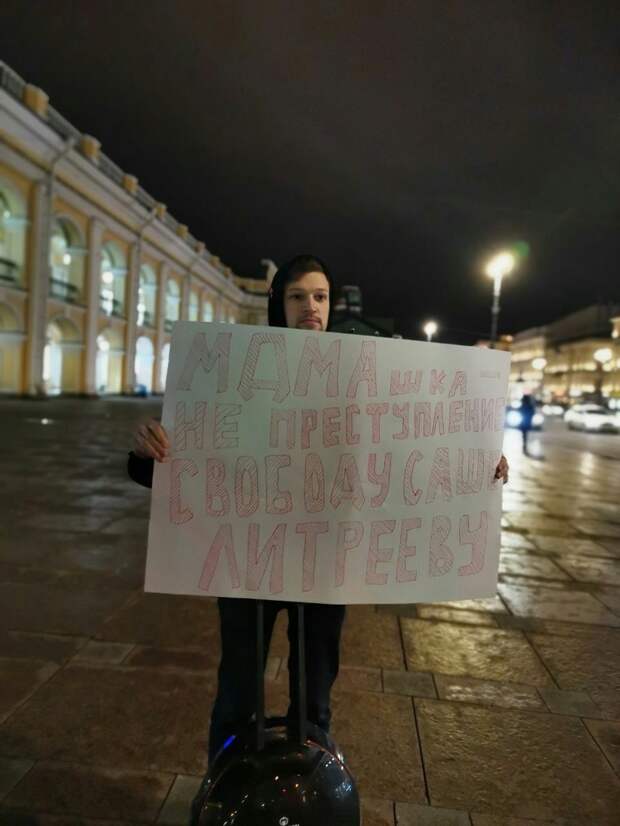 МДМАШКА
НЕ ПРЕСТУПЛЕНИЕ
СВОБОДУ САШЕ
ЛИТРЕЕВУ